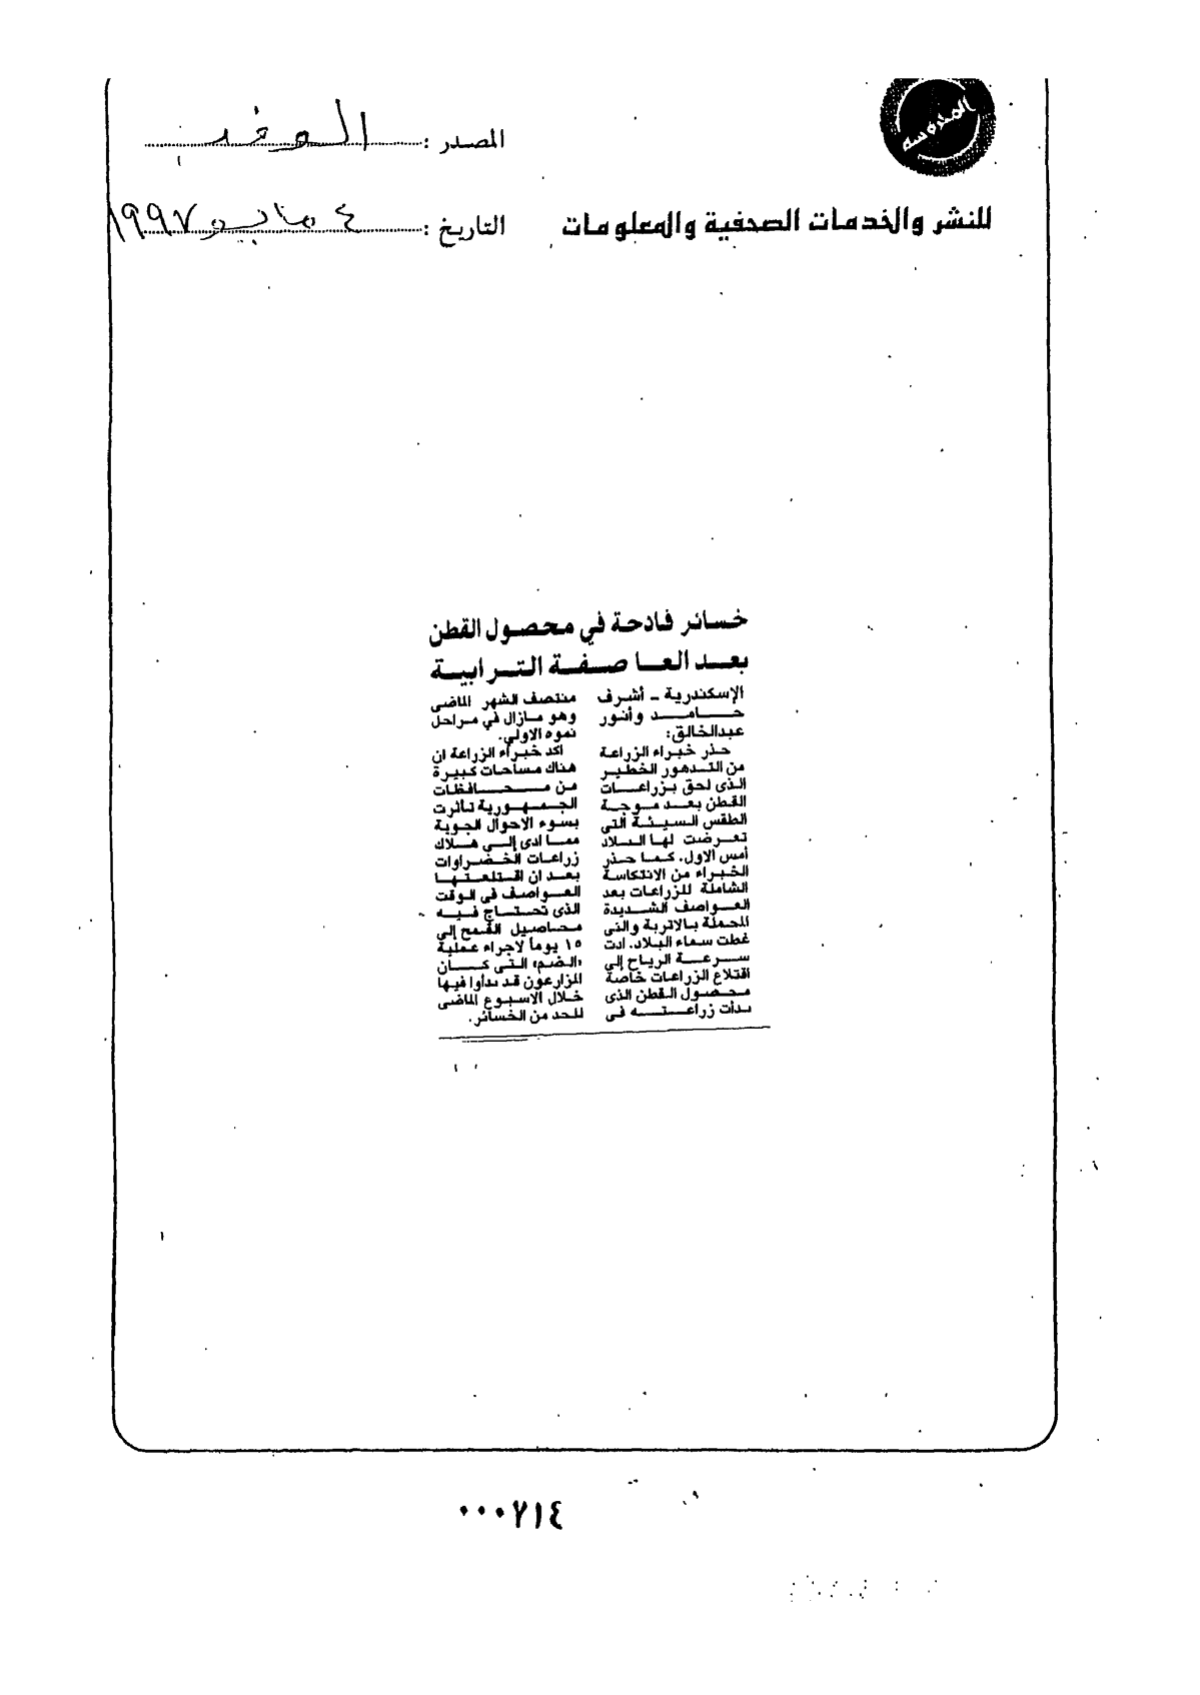 المحروسة
المصدر : الوفد
للنشر والخدمات الصحفية والمعلومات
التاريخ : ٤ مايو ١٩٩٧
خسائر فادحة في محصول القطن
بعد العاصفة الترابية
الإسكندرية - أشرف
حامد وأنور
عبدالخالق:
حذر خبراء الزراعة
من التدهور الخطير
الذى لحق بزراعات
القطن بعد موجة
الطقس السيئة التى
تعرضت لها البلاد
أمس الاول. كما حذر
الخبراء من الانتكاسة
الشاملة للزراعات بعد
العواصف الشديدة
المحملة بالاتربة والتى
غطت سماء البلاد. ادت
سرعة الرياح إلى
اقتلاع الزراعات خاصة
محصول القطن الذى
بدأت زراعته فى
منتصف الشهر الماضى
وهو مازال في مراحل
نموه الاولي.
اكد خبراء الزراعة ان
هناك مساحات كبيرة
من محافظات
الجمهورية تأثرت
بسوء الاحوال الجوية
مما ادى إلى هلاك
زراعات الخضراوات
بعد ان اقتلعتها
العواصف فى الوقت
الذى تحتاج فيه
محاصيل القمح إلى
١٥ يوماً لاجراء عملية
«الضم» التى كان
المزارعون قد بدأوا فيها
خلال الاسبوع الماضى
للحد من الخسائر.
٠٠٠٧١٤